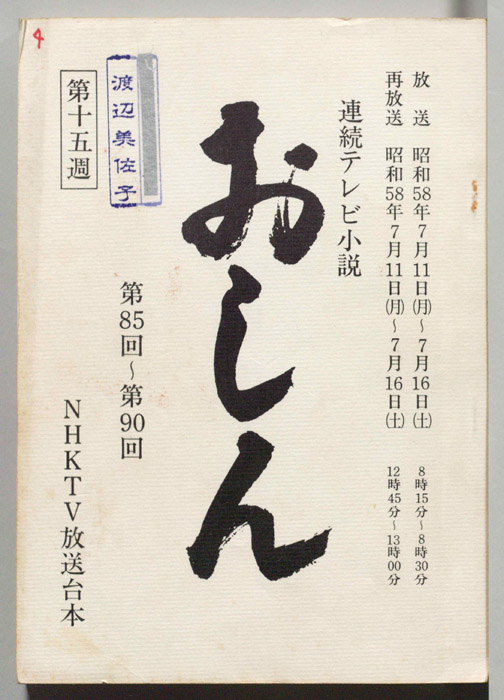 放　送　昭和58年7月11日㈪～7月16日㈯　8時15分～8時30分
再放送　昭和58年7月11日㈪～7月16日㈯　12時45分～13時00分
連続テレビ小説
おしん
第85回～第90回
第十五週
渡辺美佐子
NHKTV放送台本
4